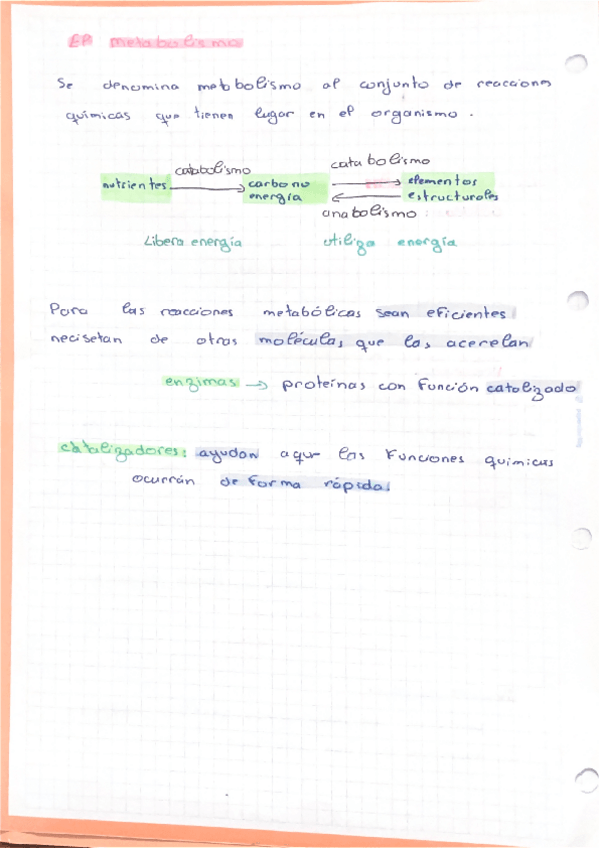 El metabolismo
Se denomina metabolismo al conjunto de reacciones
químicas que tienen lugar en el organismo.
catabolismo
catabolismo
nutrientes → carbono → elementos
energía ← estructurales
anabolismo
Libera energía utiliza energía
Para las reacciones metabólicas sean eficientes
necisetan de otras moléculas que las acerelan
enzimas → proteínas con función catalizado
catalizadores: ayudan aque las funciones químicas
ocurrán de forma rápida.